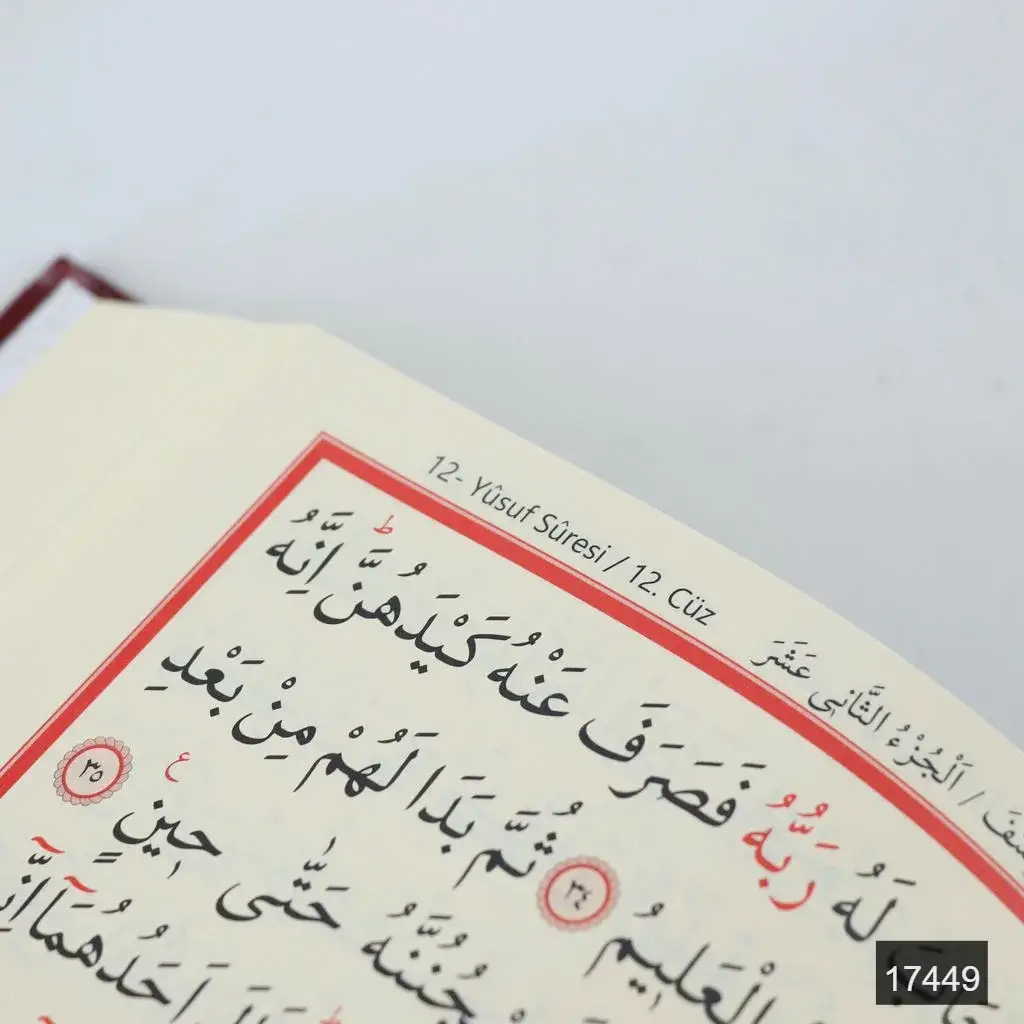 12- Yûsuf Sûresi / 12. Cüz
/ اَلْجُزْءُ الثَّانٖى عَشَرَ
لَهُ رَبُّهُ فَصَرَفَ عَنْهُ كَيْدَهُنَّ ط اِنَّهُ
الْعَلٖيمُ ٣٤ ثُمَّ بَدَا لَهُمْ مِنْ بَعْدِ
حَتّٰى حٖينٍ ع ٣٥
اَحَدُهُمَٓا
17449